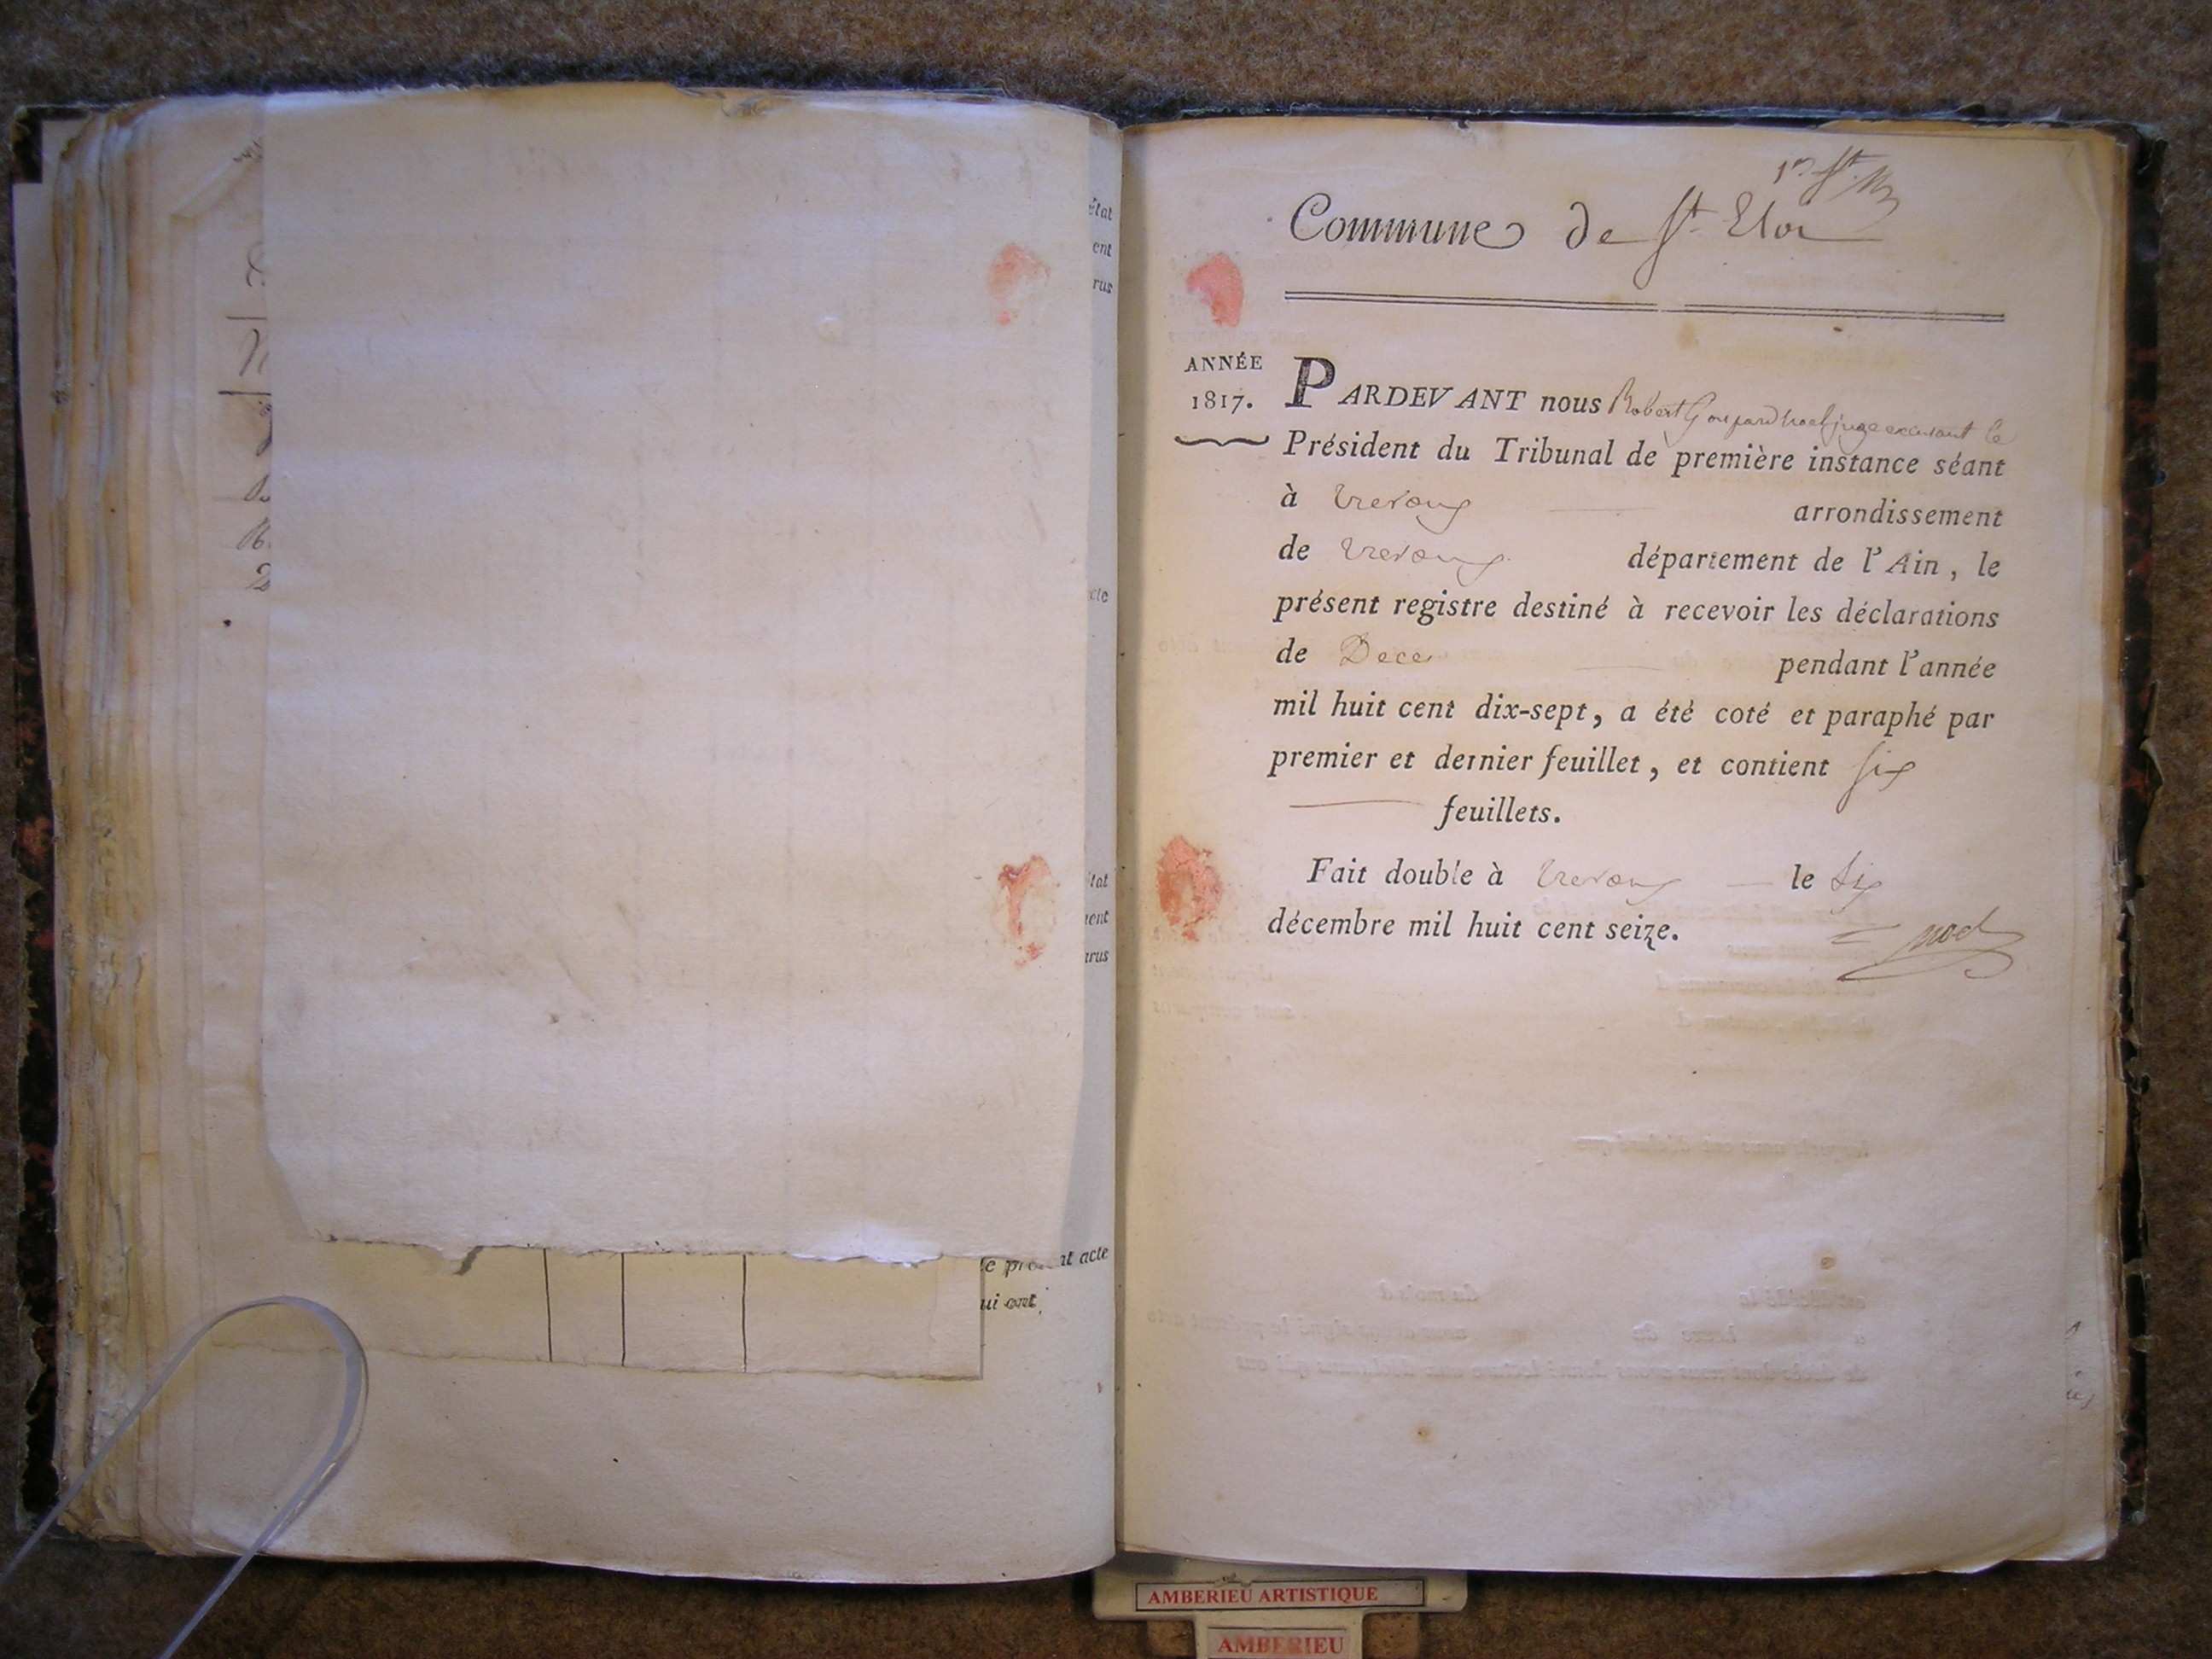 état
ent
rus
acte
état
ment
arus
le pré nt acte
ui ont
Commune de St Eloi
ANNÉE
1817.
PARDEVANT nous Robert Gaspard Noel juge exerçant le
Président du Tribunal de première instance séant
à Trevoux arrondissement
de Trevoux département de l'Ain, le
présent registre destiné à recevoir les déclarations
de Deces pendant l'année
mil huit cent dix-sept, a été coté et paraphé par
premier et dernier feuillet, et contient six
feuillets.
Fait double à Trevoux le Six
décembre mil huit cent seize.
Noel
AMBERIEU ARTISTIQUE
AMBERIEU